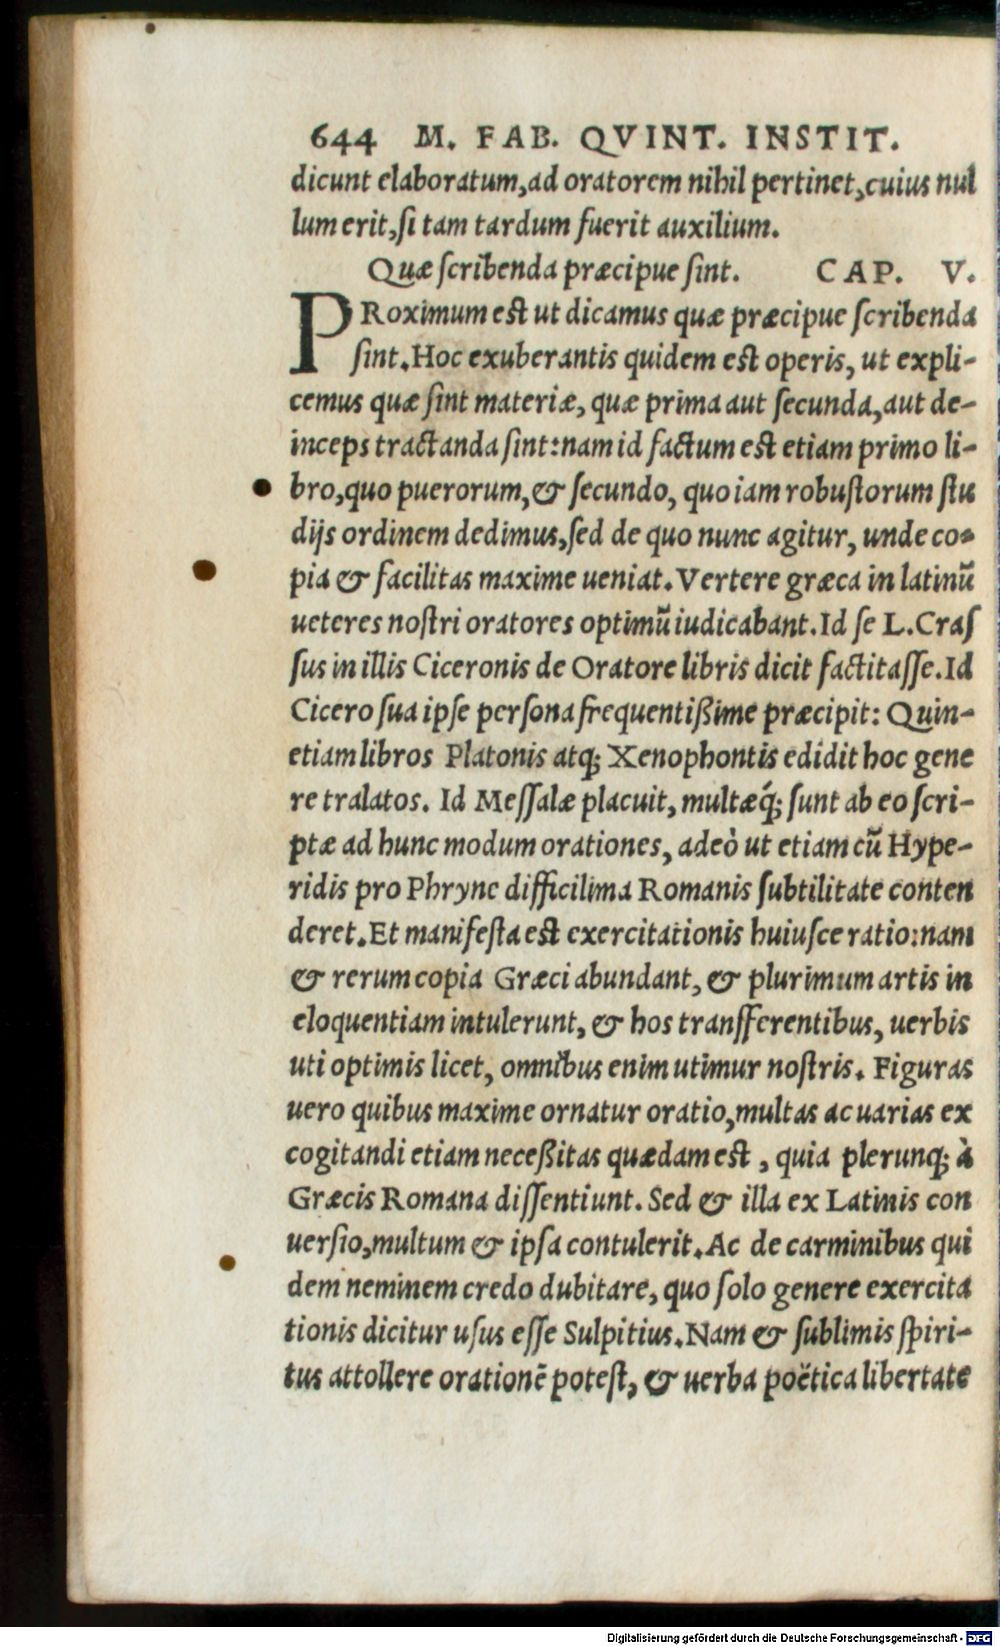 644 M. FAB. QVINT. INSTIT.
dicunt elaboratum,ad oratorem nihil pertinet,cuius nul
lum erit,ſi tam tardum fuerit auxilium.
Quæ ſcribenda præcipue ſint. CAP. V.
PRoximum est ut dicamus quæ præcipue ſcribenda
ſint.Hoc exuberantis quidem est operis, ut expli-
cemus quæ ſint materiæ, quæ prima aut ſecunda,aut de-
inceps tractanda ſint:nam id factum est etiam primo li-
bro,quo puerorum,& ſecundo, quo iam robuſtorum ſtu
dijs ordinem dedimus,ſed de quo nunc agitur, unde co-
pia & facilitas maxime ueniat.Vertere græca in latinū
ueteres noſtri oratores optimū iudicabant.Id ſe L.Craſ
ſus in illis Ciceronis de Oratore libris dicit factitaſſe.Id
Cicero ſua ipſe perſona frequentißime præcipit: Quin-
etiam libros Platonis atq; Xenophontis edidit hoc gene
re tralatos. Id Meſſalæ placuit, multæq́; ſunt ab eo ſcri-
ptæ ad hunc modum orationes, adeò ut etiam cū Hype-
ridis pro Phryne difficilima Romanis ſubtilitate conten
deret.Et manifeſta est exercitationis huiuſce ratio:nam
& rerum copia Græci abundant, & plurimum artis in
eloquentiam intulerunt, & hos tranſferentibus, uerbis
uti optimis licet, omnibus enim utimur noſtris. Figuras
uero quibus maxime ornatur oratio,multas ac uarias ex
cogitandi etiam neceßitas quædam est , quia plerunq; à
Græcis Romana diſſentiunt. Sed & illa ex Latinis con
uerſio,multum & ipſa contulerit.Ac de carminibus qui
dem neminem credo dubitare, quo ſolo genere exercita
tionis dicitur uſus eſſe Sulpitius.Nam & ſublimis ſpiri-
tus attollere orationē poteſt, & uerba poëtica libertate
Digitalisierung gefördert durch die Deutsche Forschungsgemeinschaft - DFG